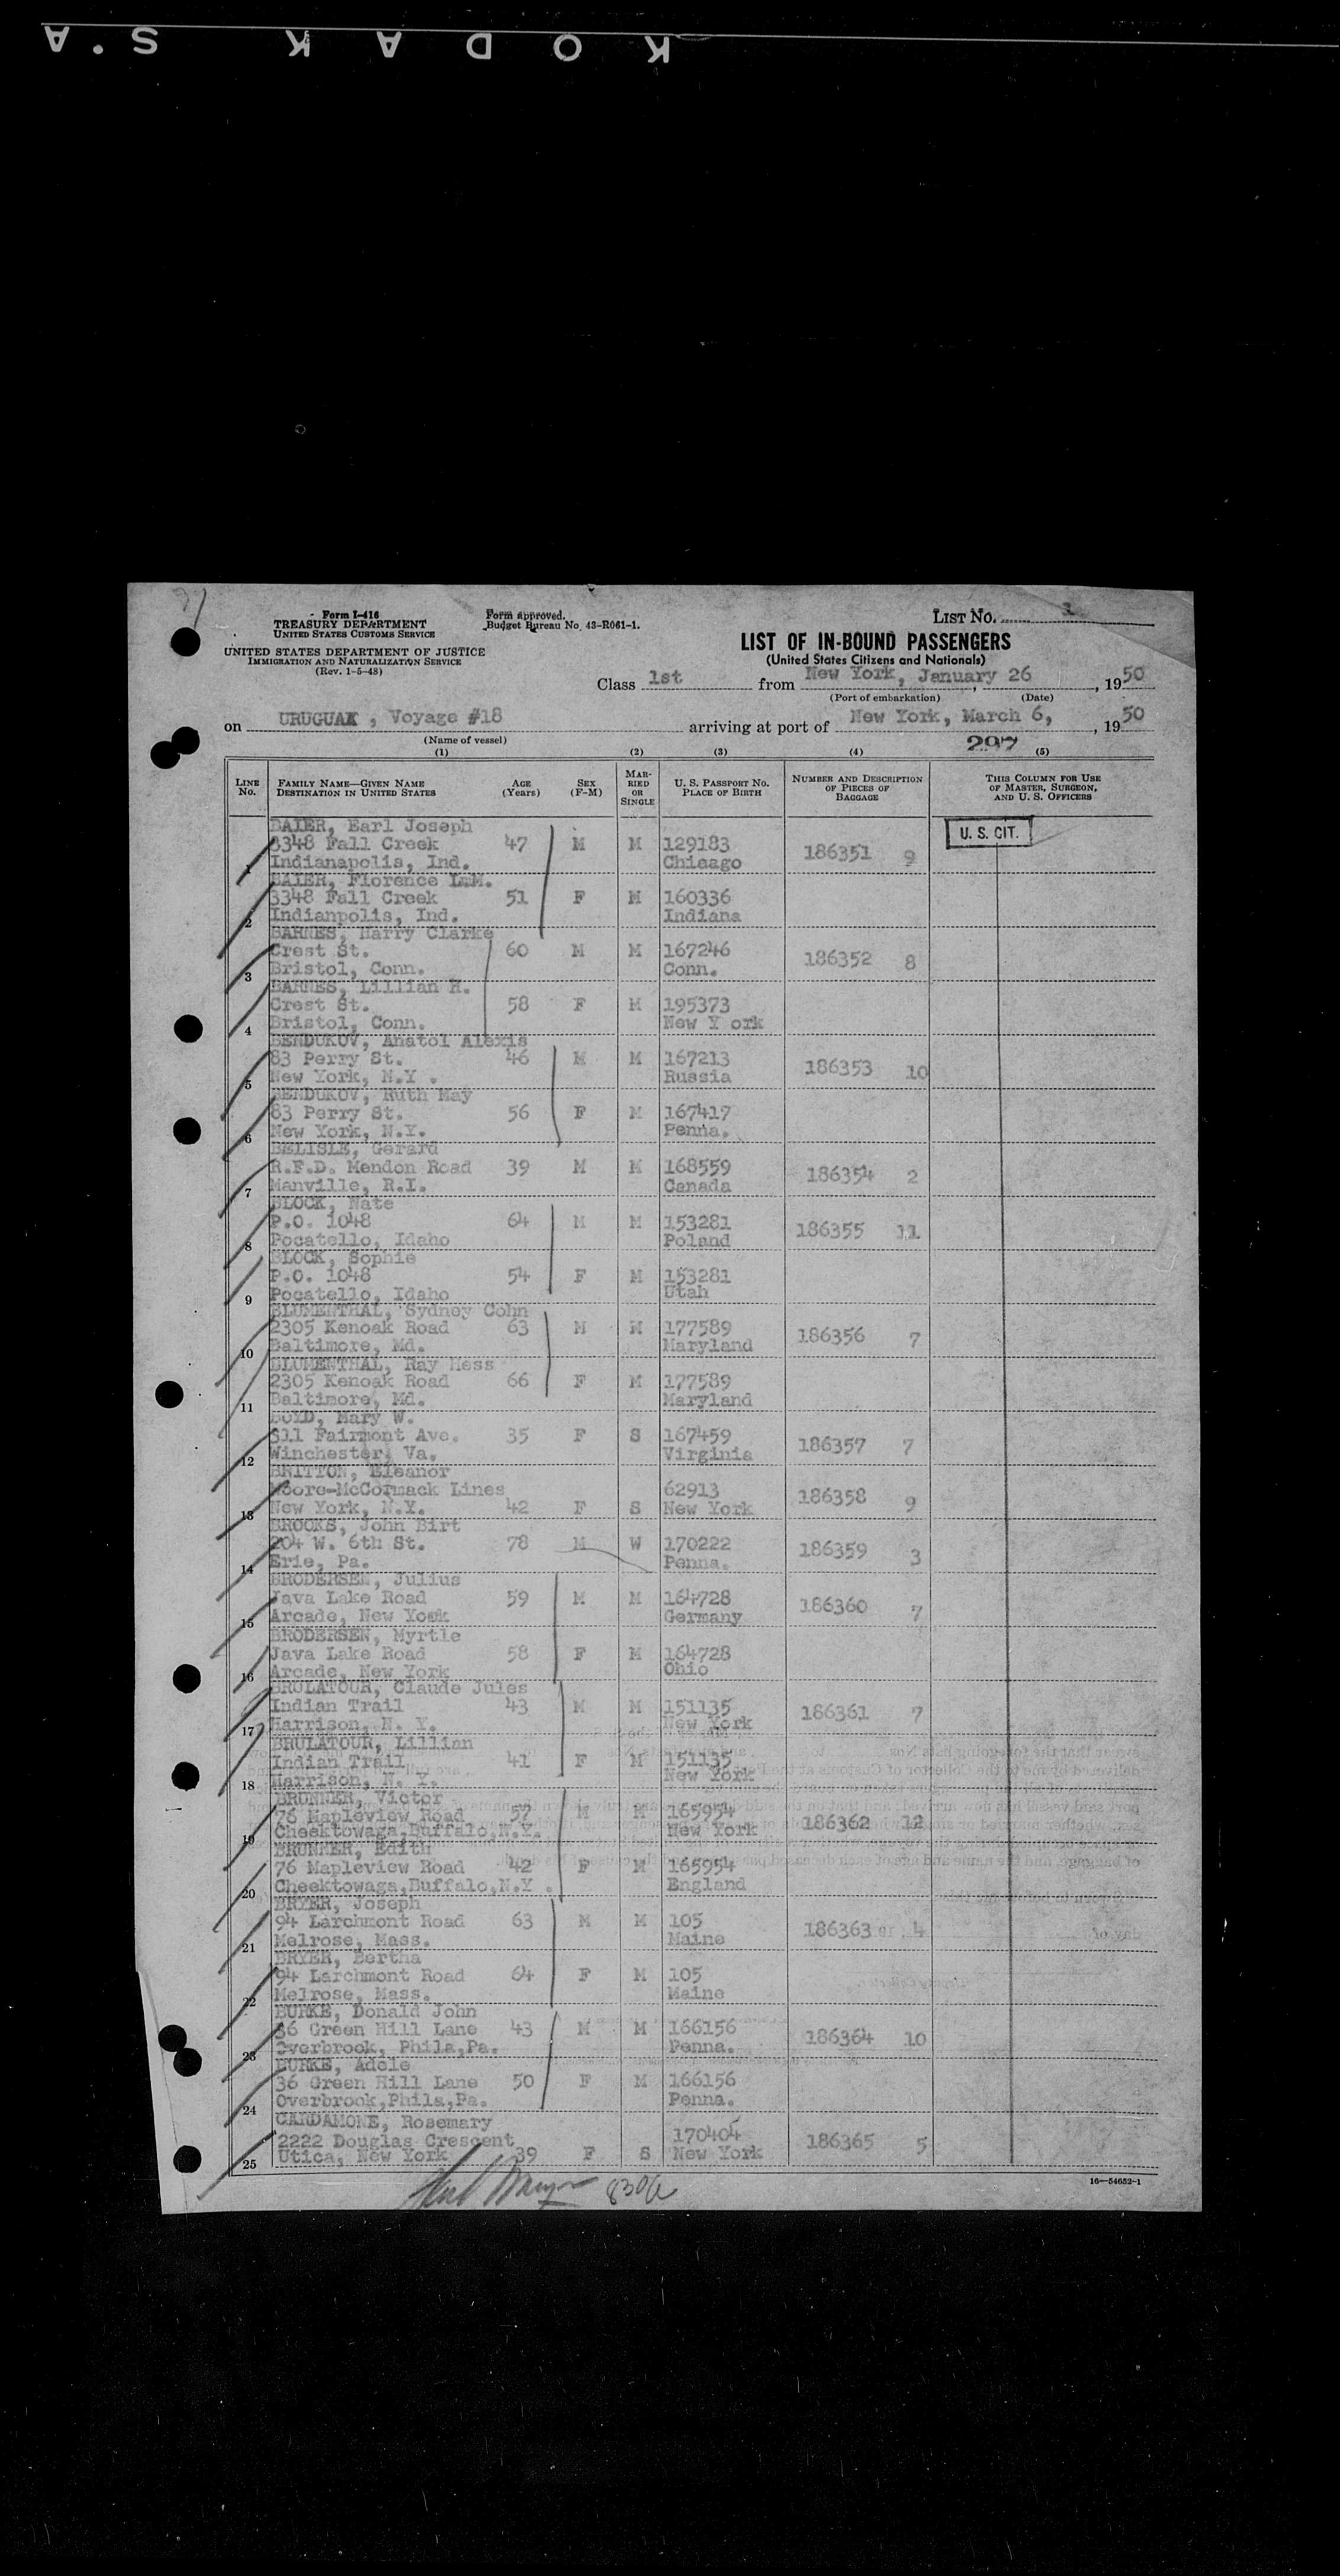 KODAK S.A
Form I-416
TREASURY DEPARTMENT
UNITED STATES CUSTOMS SERVICE
UNITED STATES DEPARTMENT OF JUSTICE
IMMIGRATION AND NATURALIZATION SERVICE
(Rev. 1-5-48)
Form approved.
Budget Bureau No. 43-R061-1.
LIST NO.
LIST OF IN-BOUND PASSENGERS
(United States Citizens and Nationals)
Class 1st from New York, January 26, 1950
(Port of embarkation) (Date)
on URUGUAY, Voyage #18 arriving at port of New York, March 6, 1950
(Name of vessel)
297
(1) (2) (3) (4) (5)
LINE No. FAMILY NAME—GIVEN NAME DESTINATION IN UNITED STATES AGE (Years) SEX (F-M) MARRIED OR SINGLE U. S. PASSPORT NO. PLACE OF BIRTH NUMBER AND DESCRIPTION OF PIECES OF BAGGAGE THIS COLUMN FOR USE OF MASTER, SURGEON, AND U. S. OFFICERS
U. S. CIT.
BAIER, Earl Joseph
3348 Fall Creek 47 M M 129183 186351 9
1 Indianapolis, Ind. Chicago
BAIER, Florence L.M.
3348 Fall Creek 51 F M 160336
2 Indianpolis, Ind. Indiana
BARNES, Harry Clarke
Crest St. 60 M M 167246 186352 8
3 Bristol, Conn. Conn.
BARNES, Lillian H.
Crest St. 58 F M 195373
4 Bristol, Conn. New Y ork
BENDUKOV, Anatol Alexis
83 Perry St. 46 M M 167213 186353 10
5 New York, N.Y . Russia
BENDUKOV, Ruth May
83 Perry St. 56 F M 167417
6 New York, N.Y. Penna.
BELISLE, Gerard
R.F.D. Mendon Road 39 M M 168559 186354 2
7 Manville, R.I. Canada
BLOCK, Nate
P.O. 1048 64 M M 153281 186355 11
8 Pocatello, Idaho Poland
BLOCK, Sophie
P.O. 1048 54 F M 153281
9 Pocatello, Idaho Utah
BLUMENTHAL, Sydney Cohn
2305 Kenoak Road 63 M M 177589 186356 7
10 Baltimore, Md. Maryland
BLUMENTHAL, Ray Hess
2305 Kenoak Road 66 F M 177589
11 Baltimore, Md. Maryland
BOYD, Mary W.
311 Fairmont Ave. 35 F S 167459 186357 7
12 Winchester, Va. Virginia
BRITTON, Eleanor
Moore-McCormack Lines 62913 186358 9
13 New York, N.Y. 42 F S New York
BROOKS, John Birt
204 W. 6th St. 78 M W 170222 186359 3
14 Erie, Pa. Penna.
BRODERSEN, Julius
Java Lake Road 59 M M 164728 186360 7
15 Arcade, New York Germany
BRODERSEN, Myrtle
Java Lake Road 58 F M 164728
16 Arcade, New York Ohio
BRULATOUR, Claude Jules
Indian Trail 43 M M 151135 186361 7
17 Harrison, N. Y. New York
BRULATOUR, Lillian
Indian Trail 41 F M 151135
18 Harrison, N. Y. New York
BRUNNER, Victor
76 Mapleview Road 57 M M 165954 186362 12
19 Cheektowaga,Buffalo,N.Y. New York
BRUNNER, Edith
76 Mapleview Road 42 F M 165954
20 Cheektowaga,Buffalo,N.Y . England
BRYER, Joseph
94 Larchmont Road 63 M M 105 186363 4
21 Melrose, Mass. Maine
BRYER, Bertha
94 Larchmont Road 64 F M 105
22 Melrose, Mass. Maine
BURKE, Donald John
36 Green Hill Lane 43 M M 166156 186364 10
23 Overbrook, Phila,Pa. Penna.
BURKE, Adele
36 Green Hill Lane 50 F M 166156
24 Overbrook,Phila,Pa. Penna.
CARDAMONE, Rosemary
2222 Douglas Crescent 170404 186365 5
25 Utica, New York 39 F S New York
16—54652-1